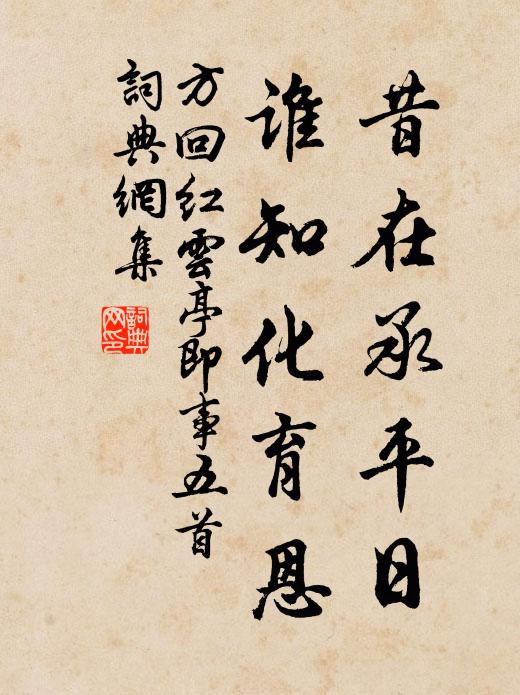 昔在承平日
谁知化育恩
方回红雲亭即事五首
詞典網集
詞典网印